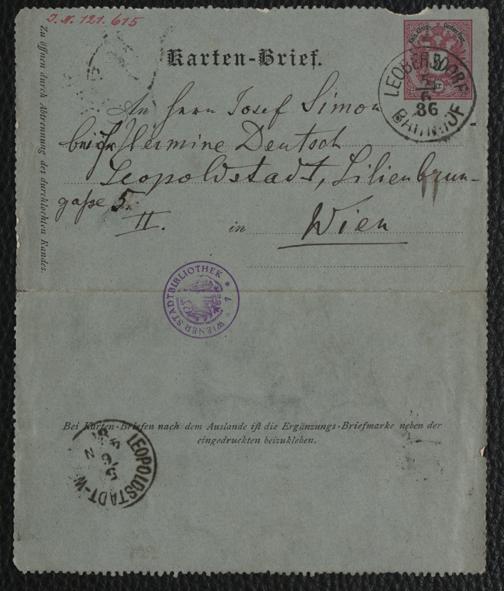 J. N. 121.615
Karten-Brief.
Zu öffnen durch Abtrennung des durchlochten Randes.
LEOBERSDORF
86
BAHNHOF
An Herrn Josef Simon
bei Fr Hermine Deutsch
Leopoldstadt, Lilienbrun-
gaße 5.
II.
in Wien
WIENER STADTBIBLIOTHEK
Bei Karten-Briefen nach dem Auslande ist die Ergänzungs-Briefmarke neben der
eingedruckten beizukleben.
LEOPOLDSTADT-W